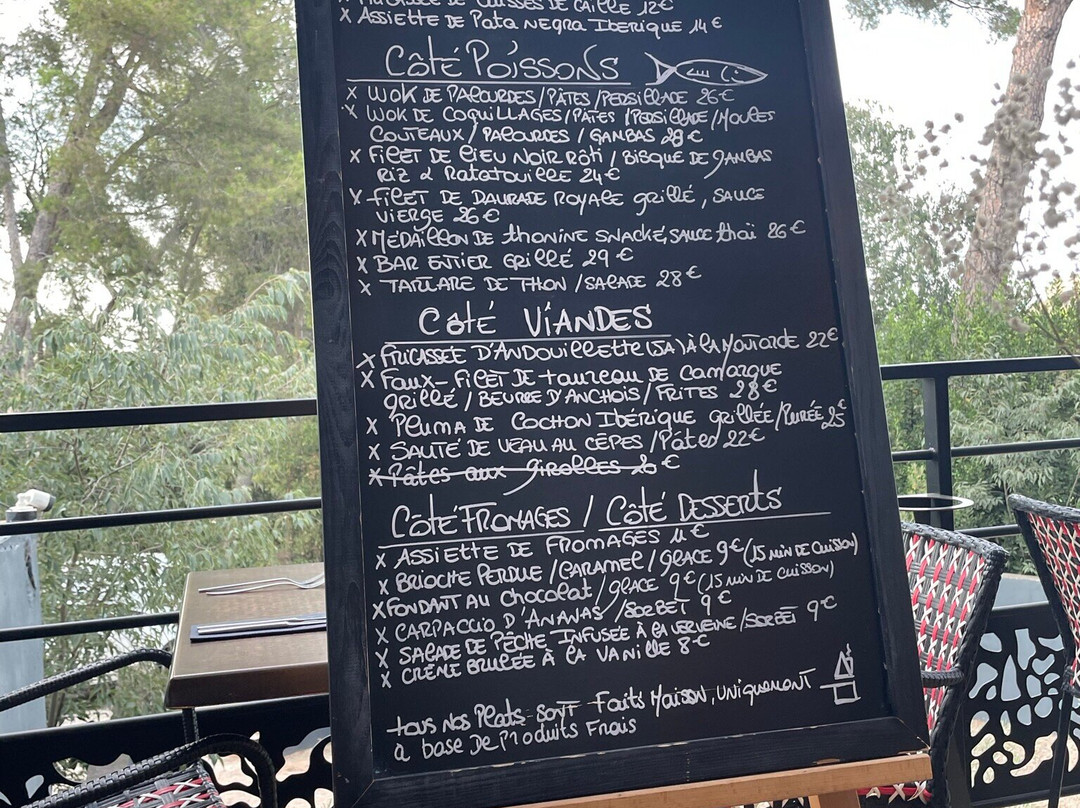 DE CUISSES DE CAILLE 12€
X ASSIETTE DE PATA NEGRA IBERIQUE 14€
Côté Poissons
X WOK DE PALOURDES/PÂTES/PERSILLADE 26€
X WOK DE COQUILLAGES/PÂTES/PERSILLADE/MOULES
COUTEAUX/PALOURDES/GAMBAS 28€
X FILET DE LIEU NOIR RÔTI/BISQUE DE GAMBAS
RIZ & Ratatouille 24€
X FILET DE DAURADE ROYALE grillé, SAUCE
VIERGE 26€
X MÉDAILLON DE thonine SNACKÉ, SAUCE thaï 26€
X BAR ENTIER GRILLÉ 29€
X TARTARE DE THON/SALADE 28€
Côté VIANDES
X FRICASSÉE D'ANDOUILLETTE (5A) À LA MOUTARDE 22€
X Faux-Filet DE taureau DE CAMARGUE
grillé/BEURRE D'ANCHOIS/FRITES 28€
X PLUMA DE COCHON IBÉRIQUE GRILLÉE/PURÉE 25€
X SAUTÉ DE VEAU AU CÈPES/Pâtes 22€
X Pâtes aux girolles 26€
Côté FROMAGES / Côté DESSERTS
X ASSIETTE DE FROMAGES 11€
X BRIOCHE PERDUE/CARAMEL/GLACE 9€ (15 MIN DE CUISSON)
X FONDANT AU Chocolat/GLACE 9€ (15 MIN DE CUISSON)
X CARPACCIO D'ANANAS/SORBET 9€
X SALADE DE PÊCHE INFUSÉE À LA VERVEINE/SORBET 9€
X CRÈME BRULÉE À LA VANILLE 8€
tous nos Plats sont Faits Maison, uniquement
à base De Produits Frais